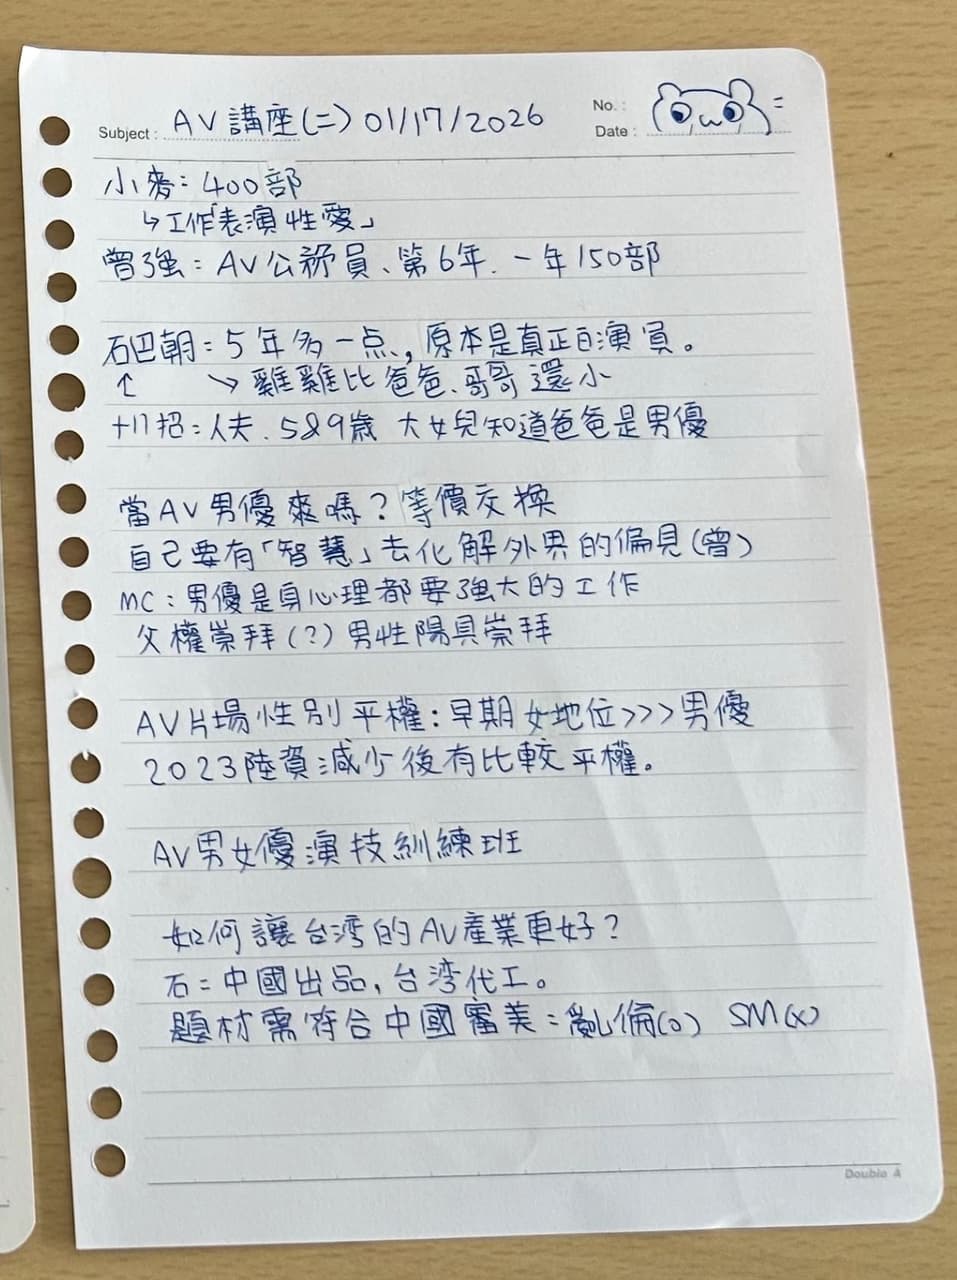 Subject : AV講座(二) 01/17/2026
No. : 二
Date :
小麥：400部
↳工作「表演性愛」
曾強：AV公務員、第6年. 一年150部
石巴朝：5年多一点、, 原本是真正的演員。
↑ ↘ 雞雞比爸爸、哥哥還小
十八招：人夫. 5&9歲 大女兒知道爸爸是男優
當AV男優爽嗎？等價交換
自己要有「智慧」去化解外界的偏見(曾)
MC：男優是身心理都要強大的工作
父權崇拜(?) 男性陽具崇拜
AV片場性別平權：早期女地位>>>男優
2023陸資減少後有比較平權。
AV男女優演技訓練班
如何讓台湾的AV產業更好？
石：中國出品, 台湾代工。
題材需符合中國審美：亂倫(o) SM(x)
Double A